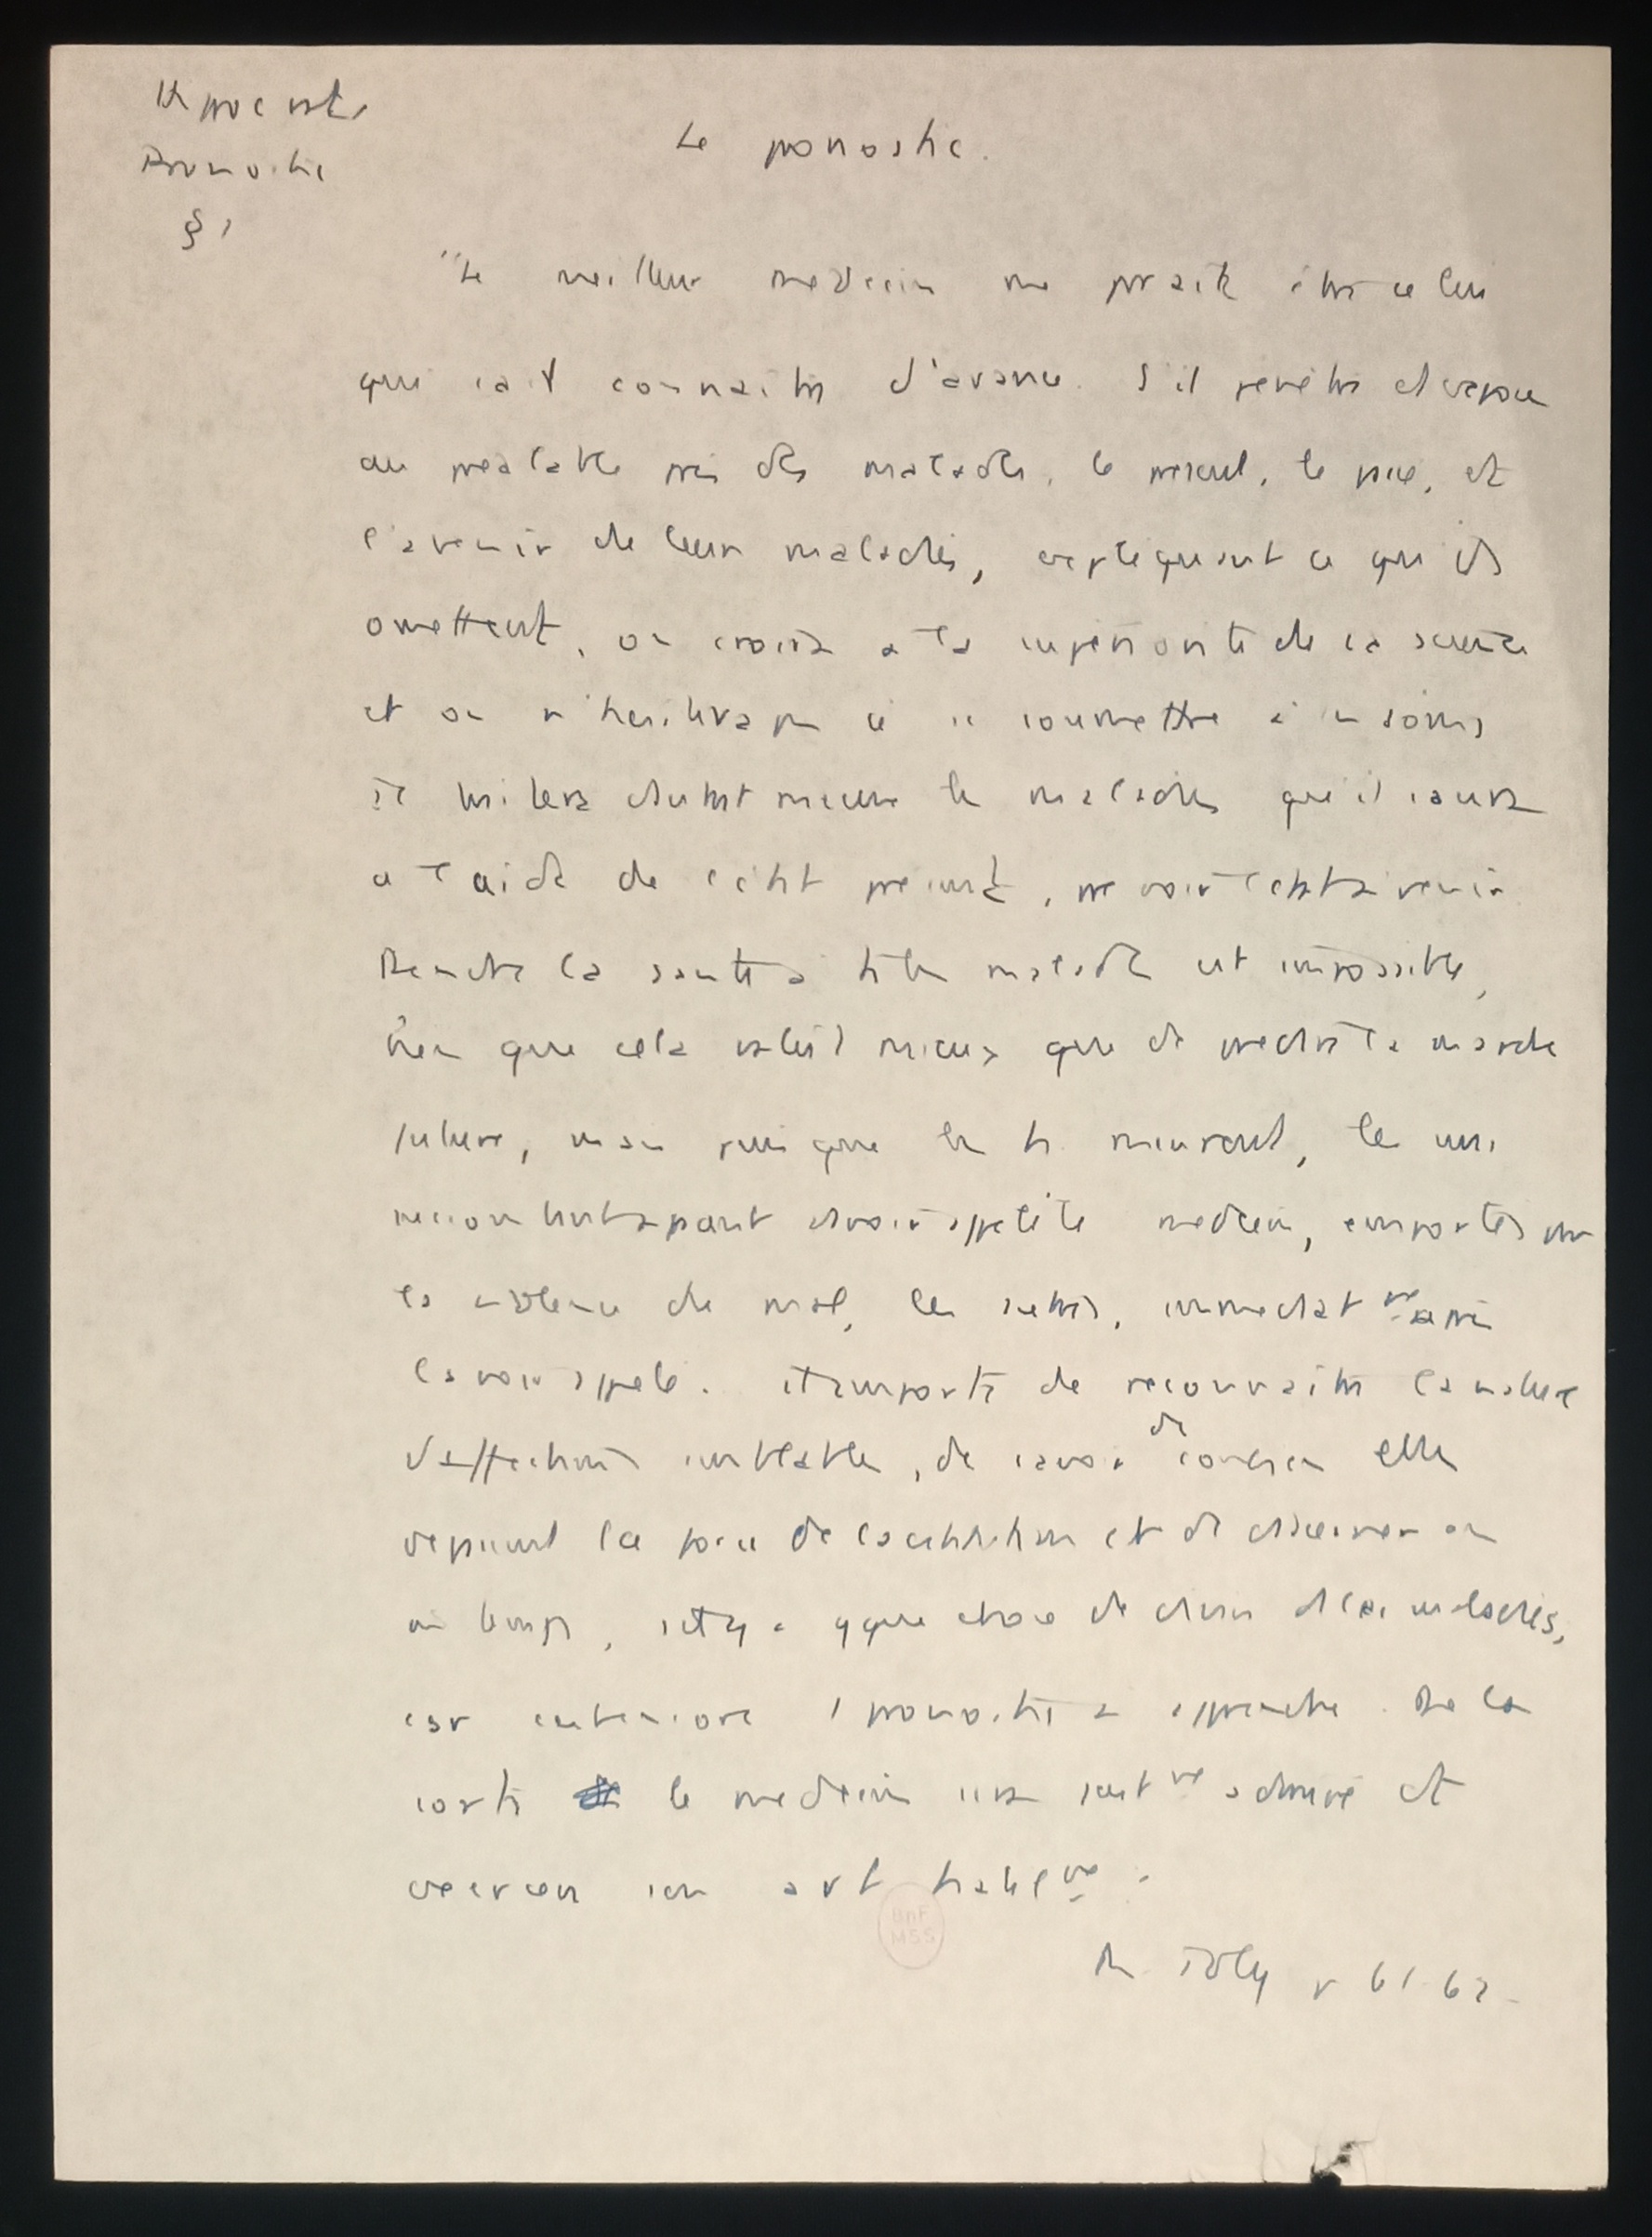 Hippocrate
Pronostic
§ 1
Le pronostic.
"Le meilleur médecin me paraît être celui
qui sait connaître d'avance. S'il pénètre et expose
au préalable près des malades, le présent, le passé, et
l'avenir de leurs maladies, expliquant ce qu'ils
omettent, on croira à la supériorité de sa science
et on n'hésitera pas à se soumettre à ses soins
Il traitera d'autant mieux les maladies qu'il saura
à l'aide de l'état présent, prévoir l'état à venir
Rendre la santé à tous les malades est impossible,
bien que cela valût mieux que de prédire la marche
future, mais puisque les h. meurent, les uns
succombant avant d'avoir appelé le médecin, emportés par
la violence du mal, les autres, immédiat^me après
l'avoir appelé. Il importe de reconnaître la nature
d'affections semblables, de savoir de combien elles
dépassent la force de la constitution et de discerner en
m temps, s'il y a qque chose de divin ds les maladies,
car c'est encore 1 pronostic à apprendre. De la
sorte le médecin sera just^me admiré et
exercera son art habil^me."
Tr. Joly p 61-62.
BnF
MSS